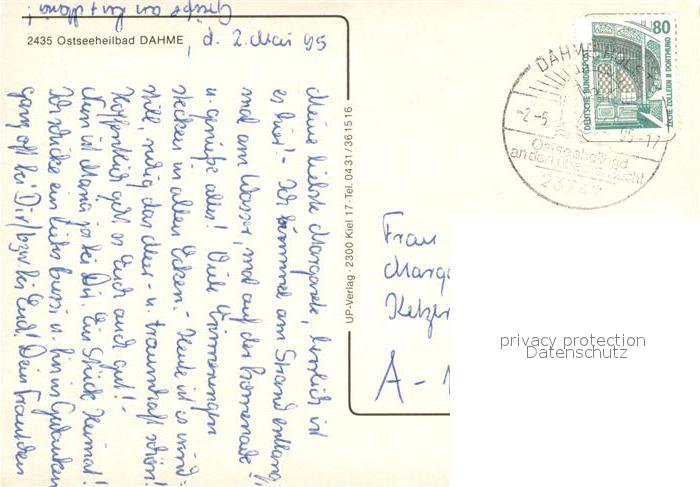 Grüße an
2435 Ostseeheilbad DAHME
, d. 2. Mai 95
Meine liebste Margarete, herrlich ist
es hier! - Ich bummel am Strand entlang,
mal am Wasser, mal auf der Promenade
u. genieße alles! Viele Erinnerungen
stecken in allen Ecken. - Heute ist es wind-
still, ruhig das Meer - u. traumhaft schön!
Hoffentlich geht es Euch auch gut! -
Nun ist Maria ja bei Dir. Ein Stück Heimat!
Ich schicke ein liebes Bussi u. bin in Gedanken
ganz oft bei Dir/bzw. bei Euch! Dein
UP-Verlag 2300 Kiel 17 · Tel. 0431/361516
Frau
Marga
A - 1
80
DEUTSCHE BUNDESPOST
ZECHE ZOLLERN II DORTMUND
DAHME, HOLST
-2.-5. 95-17
Ostseeheilbad
an der Lübecker Bucht
23747
privacy protection
Datenschutz